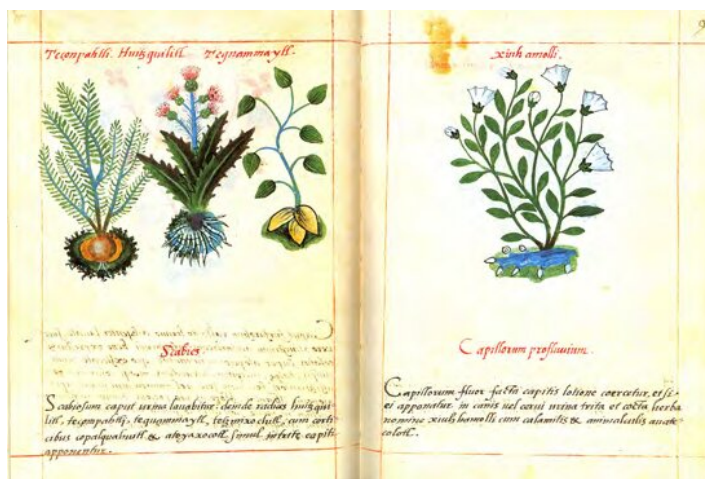 Tecompahtli. Huitzquilitl. Tequammaytl.
Scabies.
Scabiosum caput urina lauabitur. deinde radices huitzqui
litl, tecompahtli, tequammaytl, tetzmixochitl, cum corti
cibus copalquahuitl & atoyaxocotl simul intritæ capiti
apponentur.
9
xiuh amolli.
Capillorum profluuium.
Capillorum fluor facta capitis lotione coercetur, et si
ei apponatur in canis uel cerui urina trita et cocta herba
nomine xiuhhamolli cum calamitis & animalculis auate
colotl.